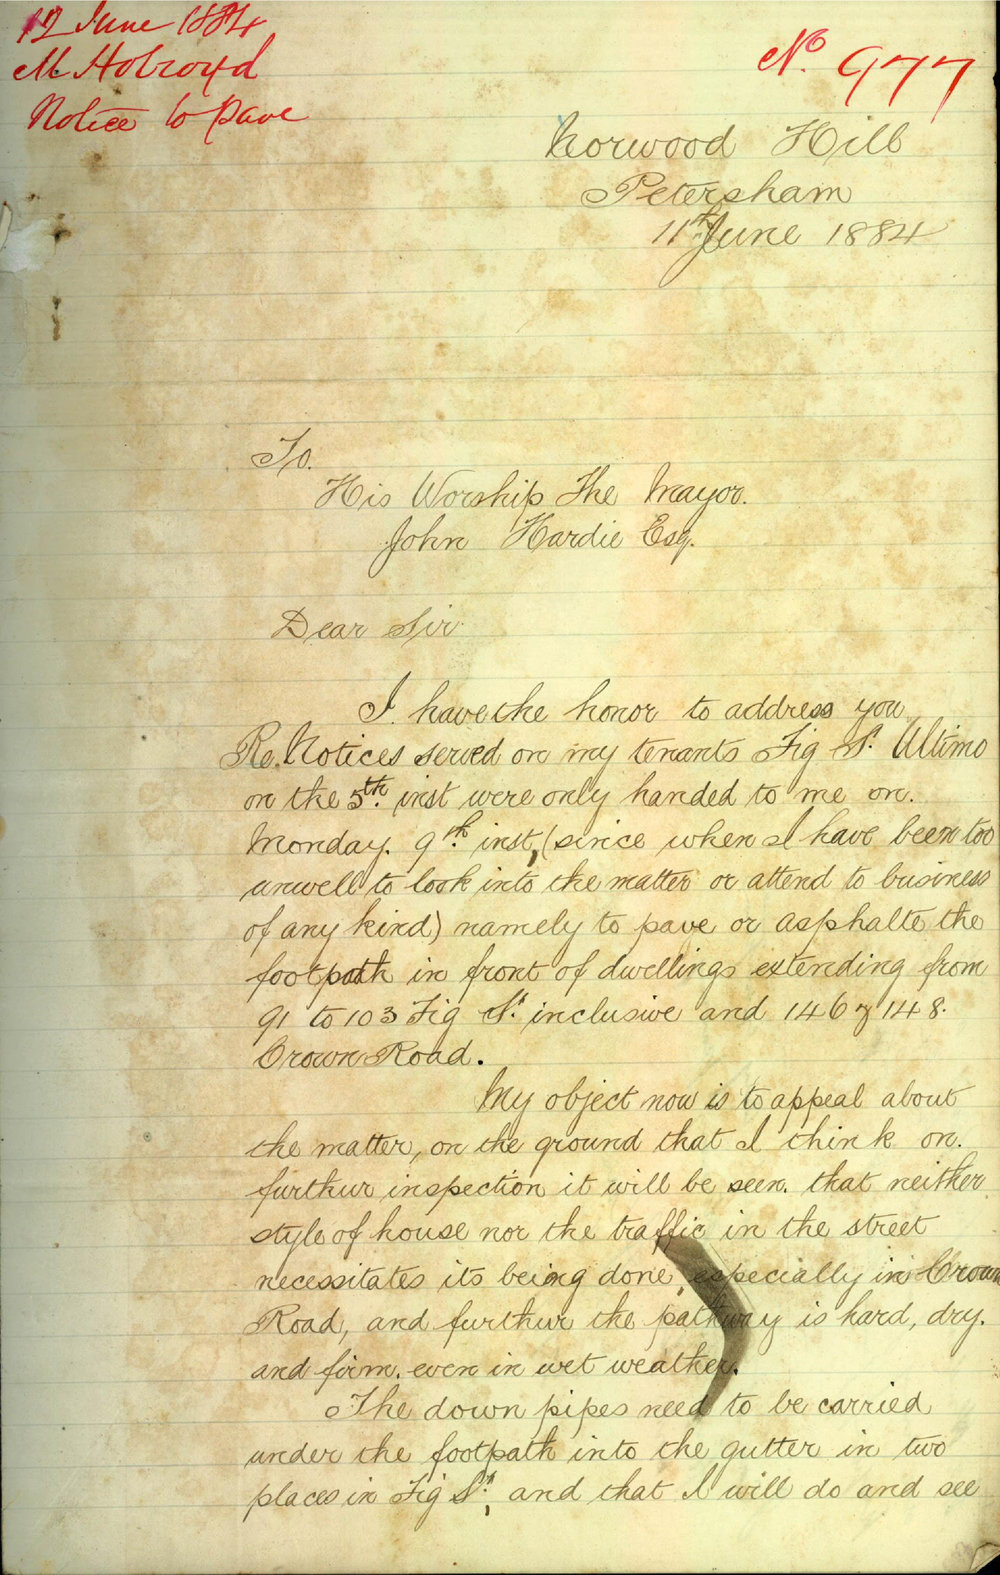 12 June 1884
M Holroyd
Notice to Pave
No. 977
Norwood Hill
Petersham
11th June 1884
To.
His Worship The Mayor.
John Hardie Esq.
Dear Sir
I have the honor to address you
Re. Notices served on my tenants Fig St. Ultimo
on the 5th. inst were only handed to me on.
Monday. 9th. inst, (since when I have been too
unwell to look into the matter or attend to business
of any kind) namely to pave or asphalte the
footpath in front of dwellings extending from
91 to 103 Fig St. inclusive and 146 & 148.
Crown Road.
My object now is to appeal about
the matter, on the ground that I think on.
furthur inspection it will be seen. that neither
style of house nor the traffic in the street
necessitates its being done, especially in Crown
Road, and furthur the pathway is hard, dry.
and firm. even in wet weather.
The down pipes need to be carried
under the footpath into the gutter in two
places in Fig St., and that I will do and see